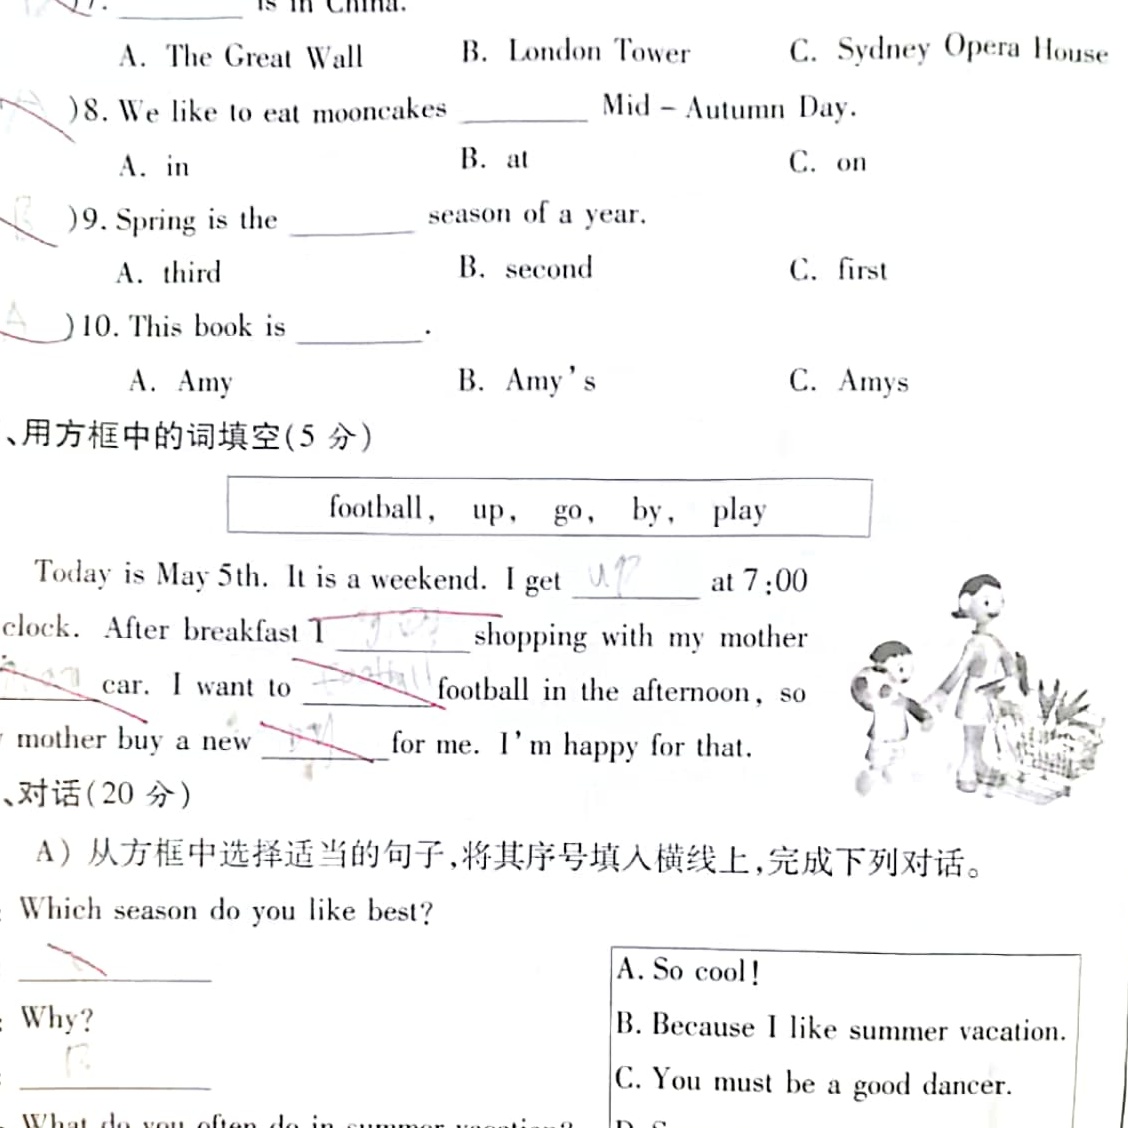 7. ______ is in China.
A. The Great Wall B. London Tower C. Sydney Opera House
)8. We like to eat mooncakes ______ Mid-Autumn Day.
A. in B. at C. on
)9. Spring is the ______ season of a year.
A. third B. second C. first
A )10. This book is ______.
A. Amy B. Amy's C. Amys
、用方框中的词填空(5 分)
football, up, go, by, play
Today is May 5th. It is a weekend. I get up at 7:00
clock. After breakfast I ______ shopping with my mother
______ car. I want to football football in the afternoon, so
mother buy a new ______ for me. I'm happy for that.
、对话(20 分)
A) 从方框中选择适当的句子,将其序号填入横线上,完成下列对话。
: Which season do you like best?
A. So cool!
: Why?
B. Because I like summer vacation.
: B
C. You must be a good dancer.
What do you often do in summer vacation?